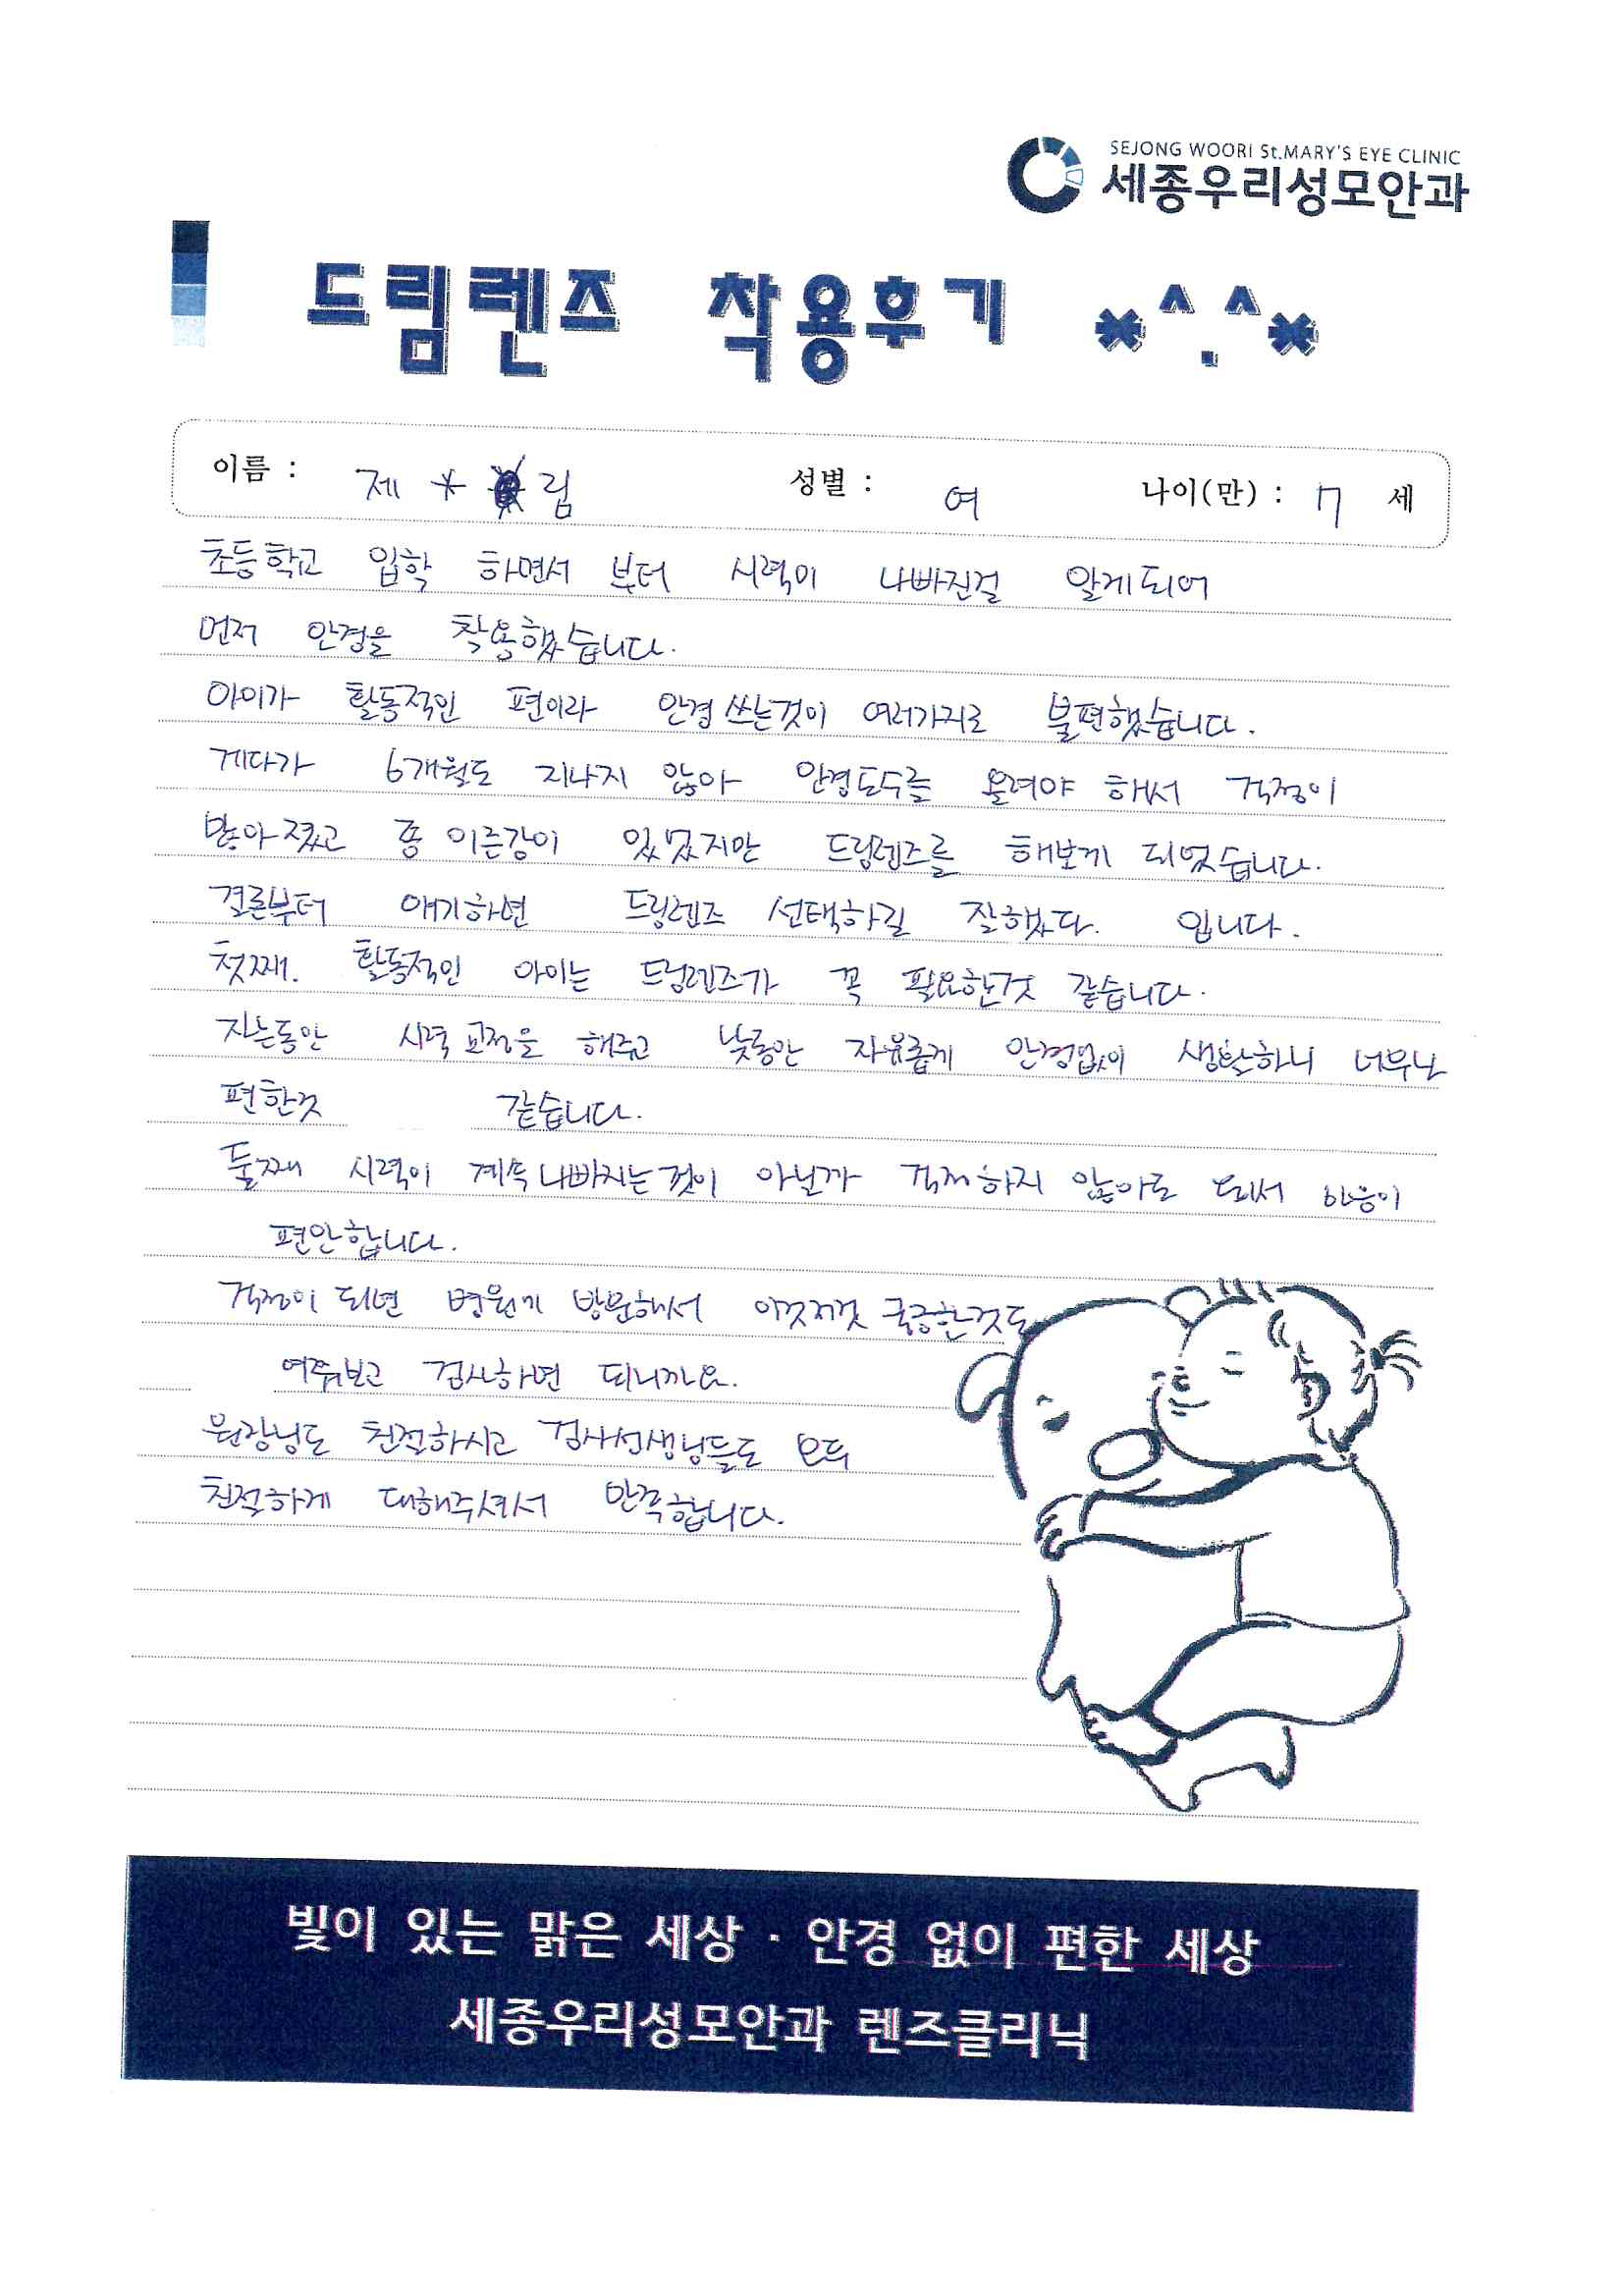 SEJONG WOORI St.MARY'S EYE CLINIC
세종우리성모안과
드림렌즈 착용후기 *^.^*
이름 : 제 * 림 성별 : 여 나이(만) : 7 세
초등학교 입학 하면서 부터 시력이 나빠진걸 알게되어
먼저 안경을 착용했습니다.
아이가 활동적인 편이라 안경 쓰는것이 여러가지로 불편했습니다.
게다가 6개월도 지나지 않아 안경도수를 올려야 해서 걱정이
많아졌고 좀 이른감이 있었지만 드림렌즈를 해보게 되었습니다.
결론부터 얘기하면 드림렌즈 선택하길 잘했다. 입니다.
첫째. 활동적인 아이는 드림렌즈가 꼭 필요한것 같습니다.
자는동안 시력교정을 해주고 낮동안 자유롭게 안경없이 생활하니 너무나
편한것 같습니다.
둘째 시력이 계속 나빠지는 것이 아닐까 걱정하지 않아도 되서 마음이
편안합니다.
걱정이 되면 병원에 방문해서 이것저것 궁금한것도
여쭤보고 검사하면 되니까요.
원장님도 친절하시고 검사선생님들도 모두
친절하게 대해주셔서 만족합니다.
빛이 있는 맑은 세상 · 안경 없이 편한 세상
세종우리성모안과 렌즈클리닉